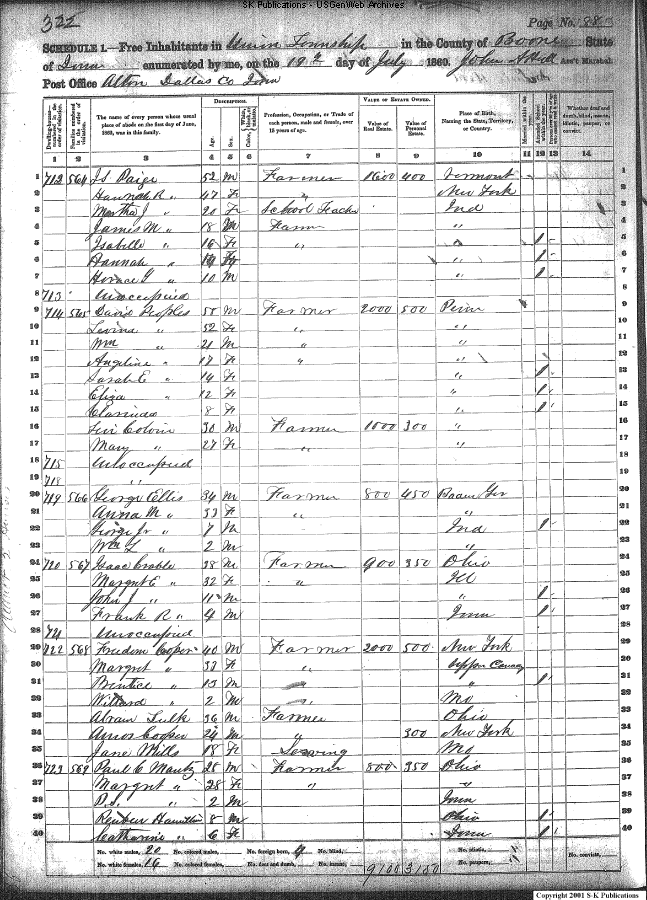 SK Publications - USGenWeb Archives
322
Page No. 88
SCHEDULE 1.—Free Inhabitants in Union Township in the County of Boone State
of Iowa enumerated by me, on the 19th day of July 1860. John Ass't Marshal
Post Office Alton Dallas Co Iowa
Dwelling-houses numbered in the order of visitation.
Families numbered in the order of visitation.
The name of every person whose usual place of abode on the first day of June, 1860, was in this family.
DESCRIPTION.
Age
Sex
Profession, Occupation, or Trade of each person, male and female, over 15 years of age.
VALUE OF ESTATE OWNED.
Value of Real Estate.
Value of Personal Estate.
Place of Birth, Naming the State, Territory, or Country.
Married within the year.
Attended School within the year.
Whether deaf and dumb, blind, insane, idiotic, pauper, or convict.
1 2 3 4 5 6 7 8 9 10 11 12 13 14
1 712 564 Paige 52 M Farmer 1600 400 Vermont 1
2 Hannah R " 47 F " New York 2
3 Martha J " 20 F School Teacher Ind 3
4 James M " 18 M Farm " 4
5 Isabelle " 16 F " " 1 5
6 Hannah " F " 1 6
7 Horace G " 10 M " 1 7
8 713 Unoccupied 8
9 714 565 David Peoples 55 M Farmer 2000 500 Penn 9
10 Levina " 52 F " " 10
11 Wm " 21 M " " 11
12 Angeline " 17 F " " 12
13 Sarah E " 14 F " 1 13
14 Eliza " 12 F " 1 14
15 Clarinda 8 F " 1 15
16 Levi Colvin 30 M Farmer 1000 300 " 16
17 Mary " 27 F " " 17
18 715 Unoccupied 18
19 718 " 19
20 719 566 George Ellis 34 M Farmer 800 450 Baaen Ger 20
21 Anna M " 33 F " " 21
22 George Jr " 7 M Ind 1 22
23 Wm L " 2 M " 23
24 720 567 Isaac Crable 38 M Farmer 900 350 Ohio 24
25 Margret E " 32 F " Ill 25
26 John J " 11 M " 1 26
27 Frank R " 9 M Iowa 1 27
28 721 Unoccupied 28
29 722 568 Freedom Cooper 40 M Farmer 2000 500 New York 29
30 Margret " 33 F " Upper Canada 30
31 Prentice " 13 M " 1 31
32 Willard " 2 M Mo 32
33 Abram Lulk 36 M Farmer Ohio 33
34 Amos Cooper 24 M " 300 New York 34
35 Jane Mills 18 F Sewing Mo 35
36 723 569 Paul C Mantz 28 M Farmer 800 350 Ohio 36
37 Margret " 28 F " " 37
38 " 2 M Iowa 38
39 Reuben Hamilton 8 M Ohio 1 39
40 Catharine " 6 F Iowa 1 40
No. white males, 20 No. colored males, No. foreign born, 4 No. blind, No. idiotic, No. convicts,
No. white females, 16 No. colored females, No. deaf and dumb, No. insane, 9100 3100 No. paupers,
Copyright 2001 S-K Publications